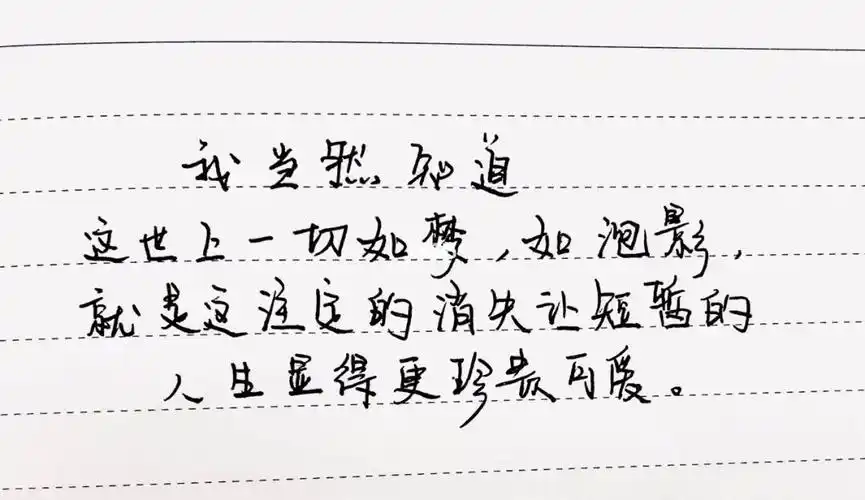 我当然知道
这世上一切如梦,如泡影,
就是这注定的消失让短暂的
人生显得更珍贵可爱。